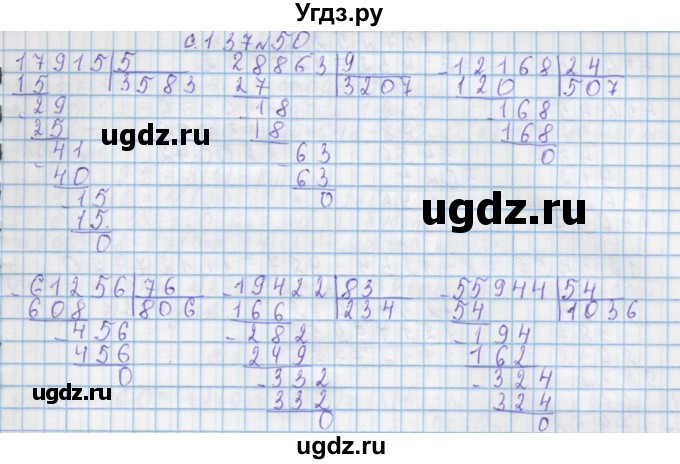 Угдз.ру
с.137№50
17915 5
15 3583
29
25
41
40
15
15
0
28863 9
27 3207
18
18
63
63
0
-12168 24
120 507
-168
168
0
ugdz.ru
ugdz.ru
-61256 76
608 806
-456
456
0
-19422 83
166 234
-282
249
-332
332
0
-55944 54
54 1036
-194
162
-324
324
0
ugdz.ru
ugdz.ru